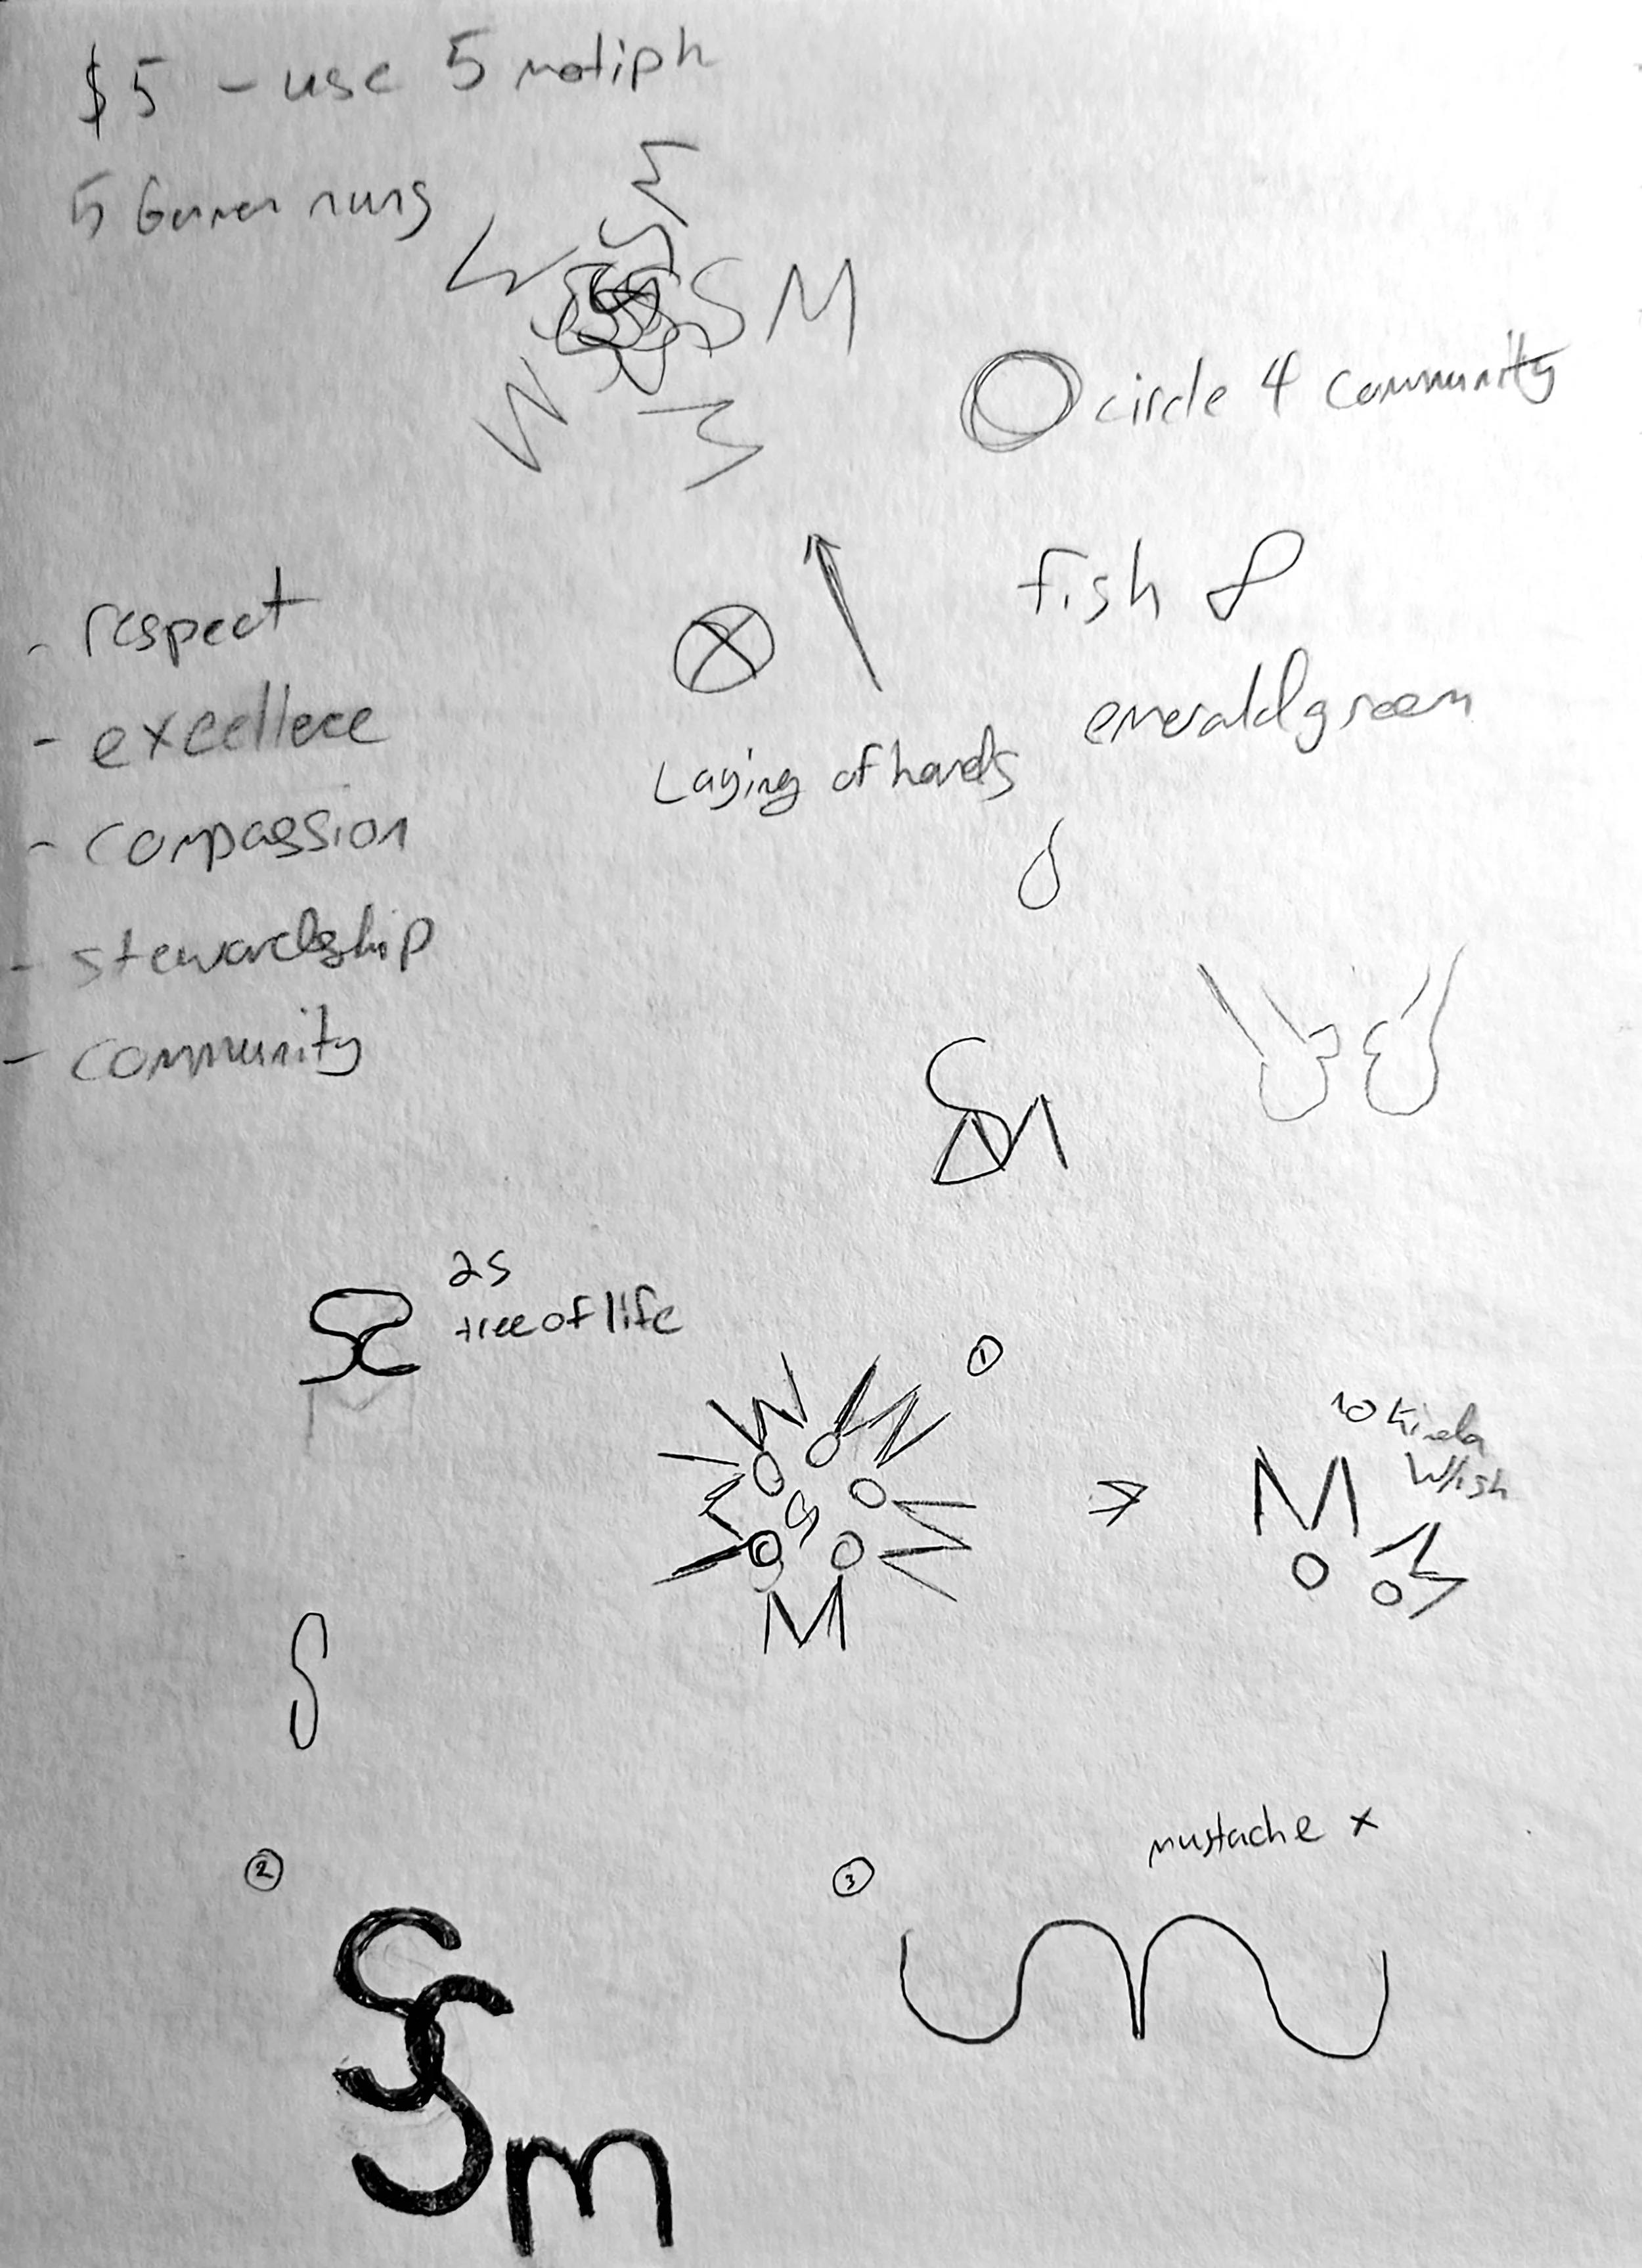 $5 - use 5 motiph
5 German nuns
SM
circle 4 community
fish
emerald green
Laying of hands
- respect
- excellece
- compassion
- stewardship
- community
SM
2s
tree of life
①
S
M
no kinda
W/ish
M
S
②
③
mustache x
SSm